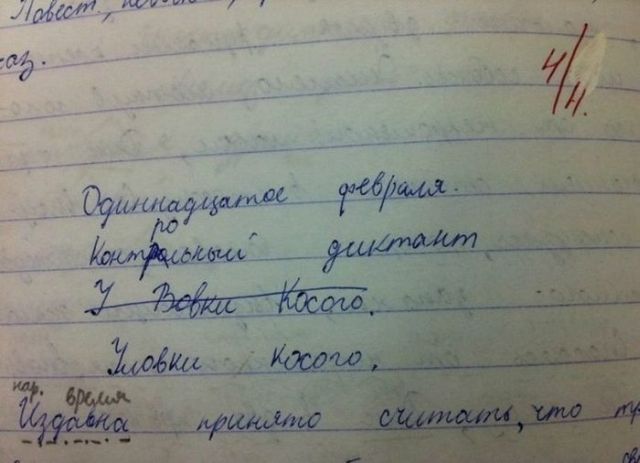 Повест.,
аз.
4/4.
Одиннадцатое февраля.
ро
Контрольный диктант
У Вовки Косого.
Уловки косого.
нар. время
Издавна принято считать, что